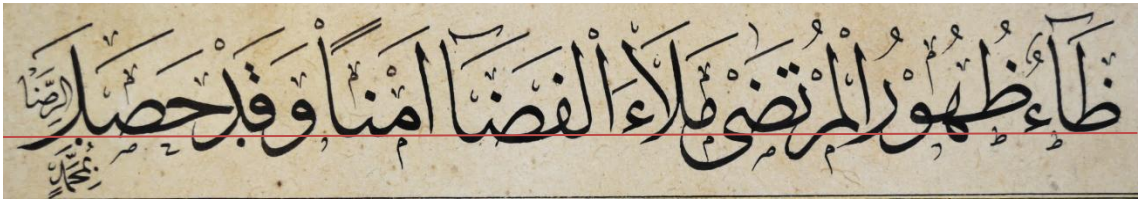 ظَآءُ ظُهُوْرُ الْمُرْتَضٰى مَلَأَءَ الْفَضَآ اَمْنًا وَقَدْ حَصَلَ الرِّضَا
بِمُحَمَّدٍ